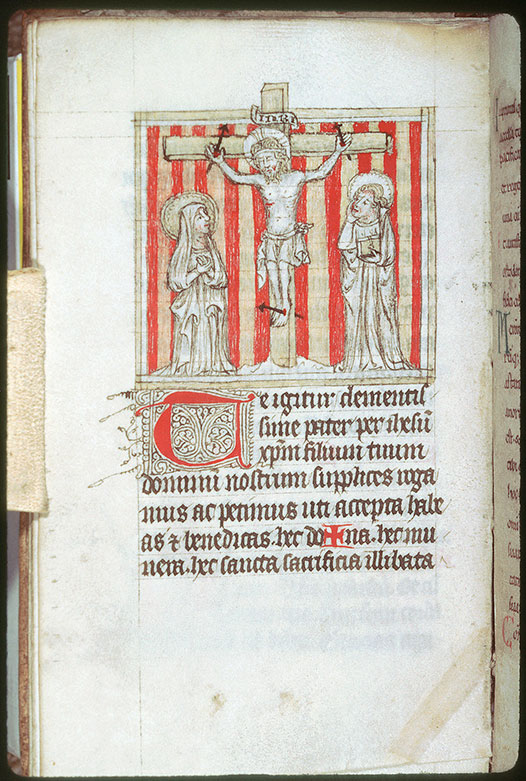 INRI
Te igitur clementis
sime pater per ihesū
xp̄m filium tuum
dominū nostrum supplices roga
mus ac petimus uti accepta habe
as ⁊ benedicas. hec do✠na. hec mu
nera. hec sancta sacrificia illibata